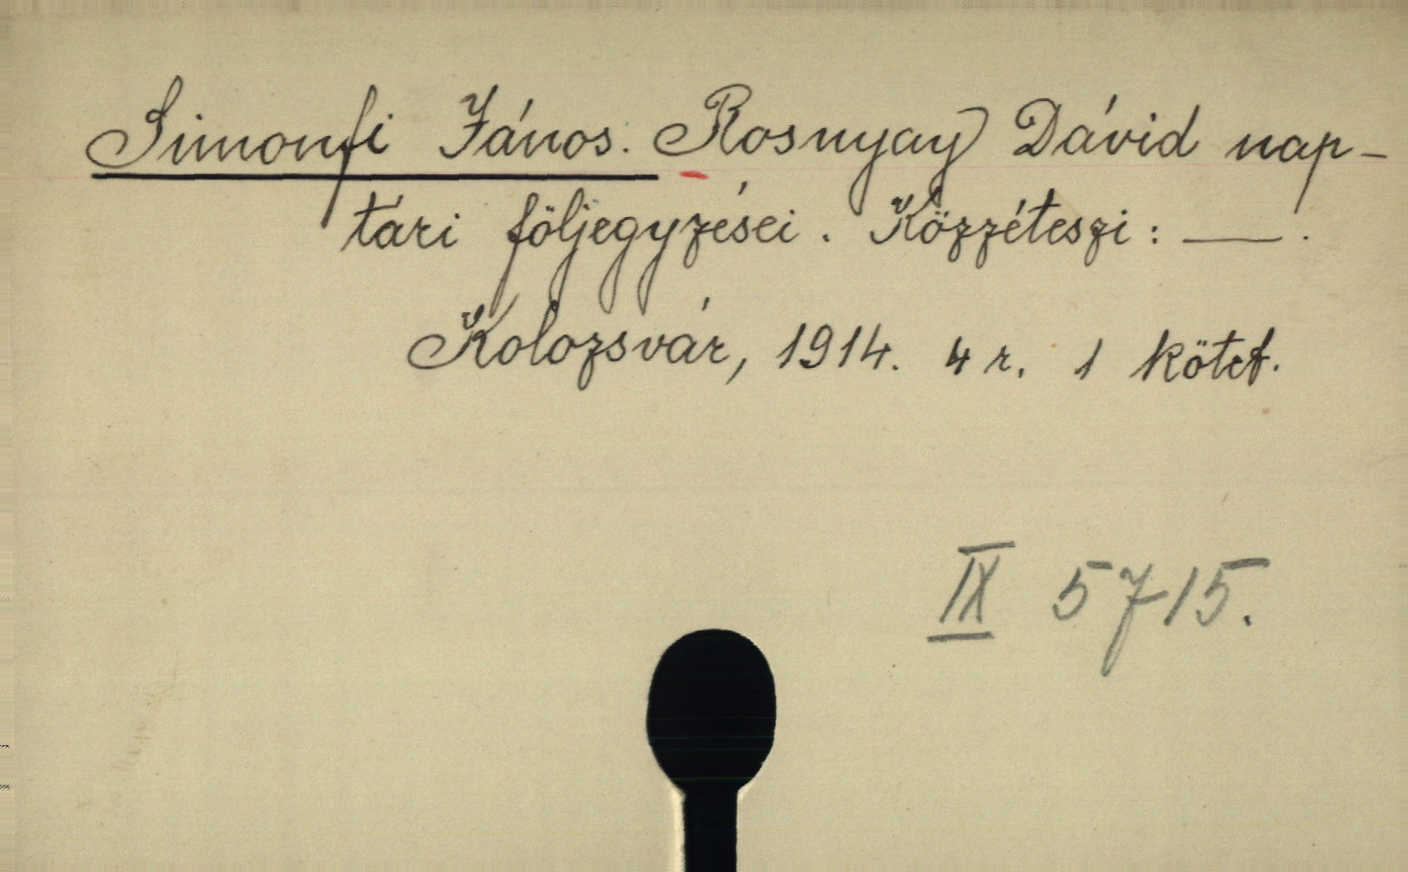 Simonfi János. Rosnyay Dávid nap-
tári följegyzései. Közzéteszi: ___.
Kolozsvár, 1914. 4 r. 1 kötet.
IX 5715.